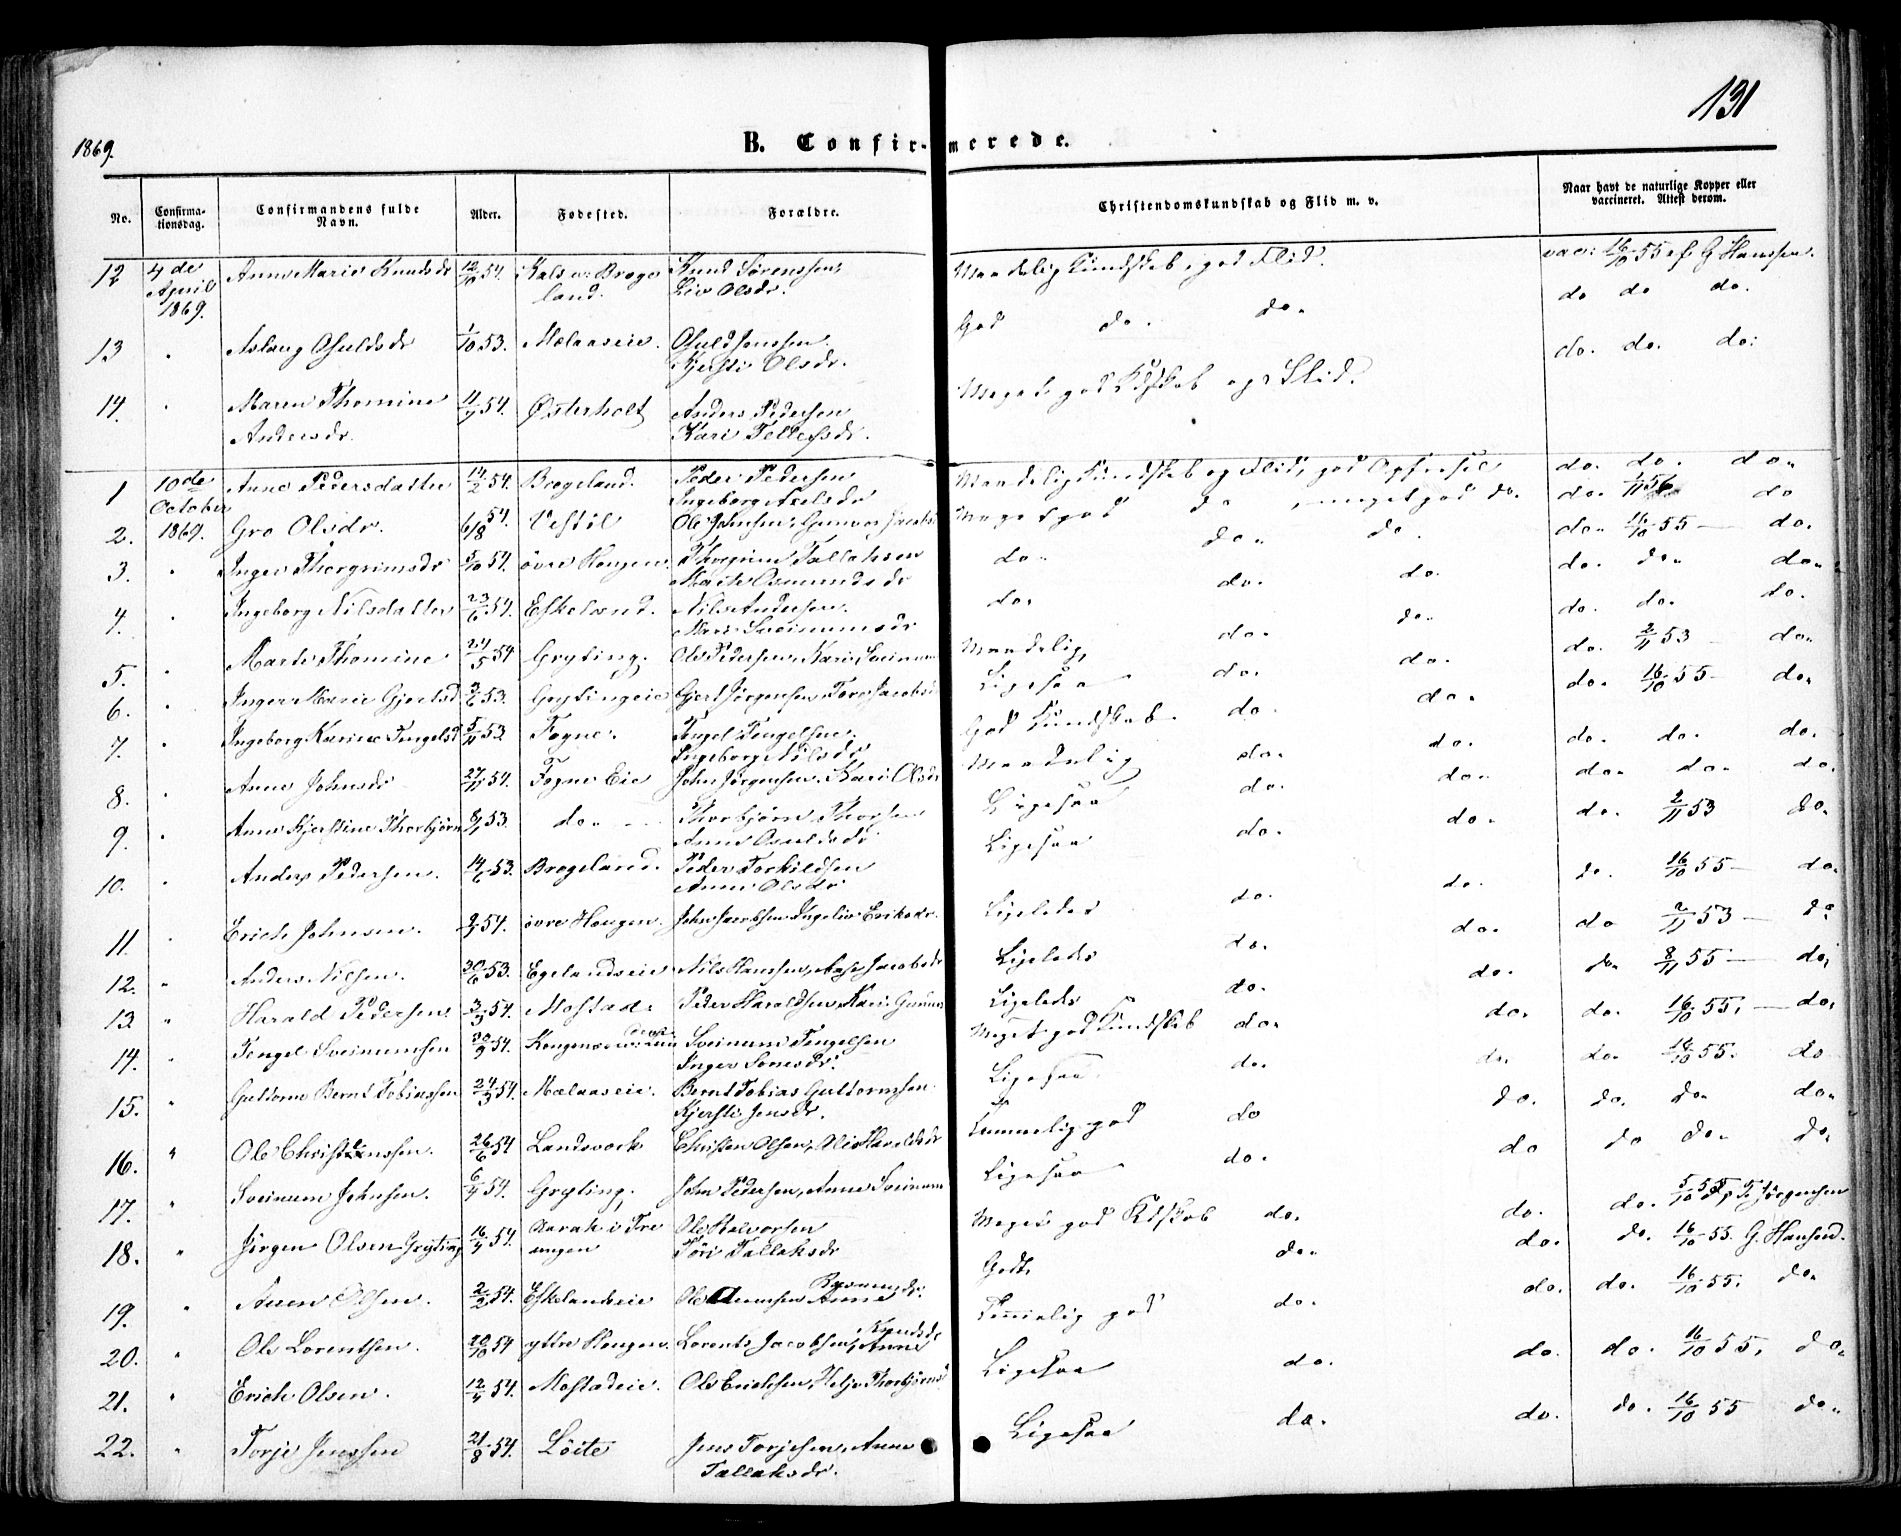 131
1869.
B. Confirmerede.
No. Confirmationsdag. Confirmandens fulde Navn. Alder. Fødested. Forældre. Christendomskundskab og Flid m. v. Naar havt de naturlige Kopper eller vaccineret. Attest derom.
12 4de April 1869. Anne Marie Knudsdr 12/10 54. Knud Sørenssen, Liv Olsdr. Maadelig Kundskab, god Flid. vac: 16/10 55 af G Hanssen.
13 Aslaug Osuldsdr 1/10 53. Mælaaseie. Osuld Jenssen. Kjersti Olsdr. God do. do. do do do.
14. Maren Thomine Andersdr. 54. Østerholt Anders Pedersen Kari Tellefsdr. Meget god Kdskab og Flid. do. do. do.
1 10de October 1869. Anne Pedersdatter 14/2 54. Brøgeland. Peder Pedersen Ingeborg Axelsdr Maadelig Kundskab og Flid, god Opførsel do. do. do.
2. Gro Olsdr. 6/8 54. Vestøl Ole Johnsen, Gunvor Meget god do, meget god do. do. 56 do
3. Inger Thorgrimsdr 5/10 54. øvre Hougen. Thorgrim Tallaksen Marte Osmundsdr do. do. do. do. 16/10 55 — do.
4. Ingeborg Nilsdatter 23/6 54. Eskeland. Nils Andersen. Sveinumsdr do. do. do. do. do. do.
5. Marte Thomine 24/5 54 Gryting. Ole Pedersen, Kari Sveinum Maadelig, do. do. do. do. do.
6. Inger Marie Gjertsd 53. Grytingeie Gjert Jørgensen, Tore Jacobsd Ligesaa do. do. do. 2/11 53 — do.
7. Ingeborg Karine Tengelsd 5/11 53 Fogne. Tengel Tengelsen. Ingeborg Nilsdr God Kundskab. do. do. do. 16/10 55 — do.
8. Anne Johnsdr 27/11 54. Fogne Eie John Jørgensen. Kari Olsdr Maadelig do. do. do. do. do.
9. Anne Kjerstine Thorbjørn 53. do. — Thorbjørn Thorsen Anne Osuldsdr Ligesaa do. do. do. do. do.
10. Anders Pedersen. 14/6 53. Brøgeland. Peder Torkildsen Anne Olsdr Ligesaa do. do. do. 2/11 53 do.
11. Erich Johnsen. 54. øvre Hougen. John Jacobsen Ingeliv Eriksdr. Ligeledes do. do. do. 16/10 55 — do.
12. Anders Nilsen. 30/6 53. Egelandseie Nils Hanssen, Aase Jacobsdr Ligeleds do. do. do 2/11 53 — do
13. Harald Pedersen 54. Mostad. Peder Haraldsen, Kari Gunnar Ligeleds do. do. do. 8/11 55 — do,
14. Tengel Sveinumsen 30/9 54. Sveinum Tengelsen Inger Meget god Kundskab do. do. do. 16/10 55. — do.
15. Guttorm Bernt Tobiassen 24/5 54. Mælaaseie. Bernt Tobias Guttormsen. Kjersti Jensdr. Ligesaa. do. do. do. 16/10 55. do
16. Ole Christenssen. 26/6 54 Landsverk Christen Olsen, Haraldsdr Temmelig god do do. do. do. do.
17. Sveinum Johnsen. 54. Gryting. John Pedersen, Anne Sveinum Ligesaa do. do do do. do.
18. Jørgen Olsen Gryting 16/4 54. Aarak i Tre ungen Ole Halvorsen Tallaksdr Meget god Kdskab do. do. do. 5/10 55 Jørgensen
19. Aven Olsen. 2/2 54. Eskelandseie Ole Anne Godt, do. do. do. 16/10 55. G. Hansen.
20. Ole Lorentsen. 20/10 54 yttre Hougen. Lorents Jacobsen, Anne Knudsdr Temmelig god do. do. do. 16/10 55. do.
21. Erich Olsen. 12/4 54. Mostadeie. Ole Erichsen, Helje Thorbjørnsd Ligesaa do. do. do. 16/10 55. do.
22. Torje Jenssen 21/8 54. Löite Jens Torjesen, Anne Tallaksdr. Ligesaa do. do. do. 16/10 55 do.